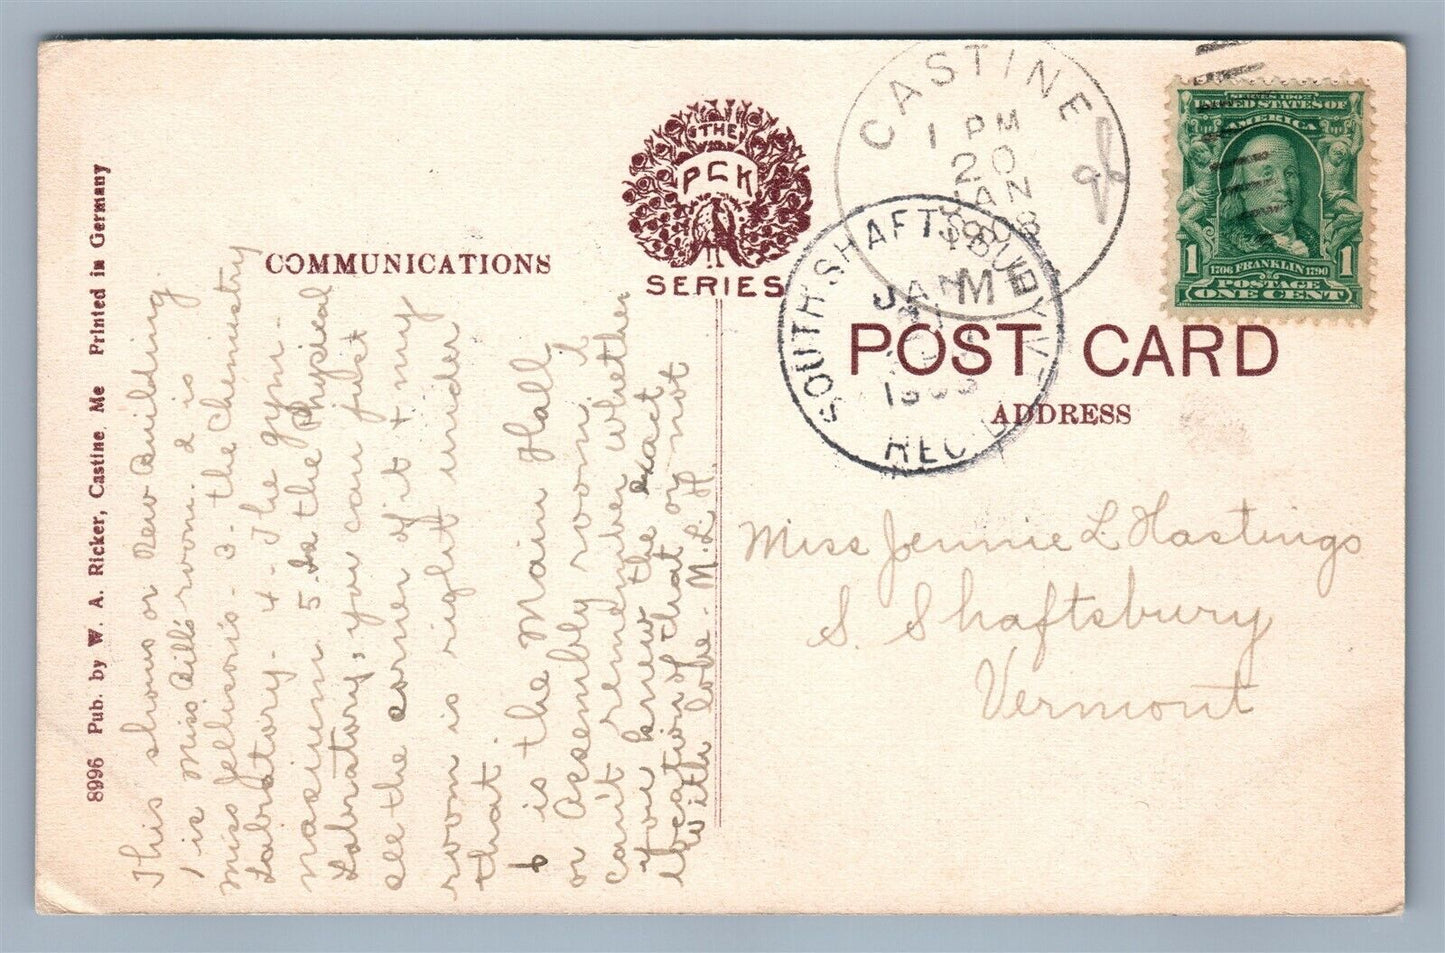 8996 Pub. by W. A. Ricker, Castine, Me Printed in Germany
COMMUNICATIONS
THE
PCK
SERIES
CASTINE
1 PM
20
JAN
1908
SOUTH SHAFTSBURY, VT.
JAN
REC'D
SERIES 1902
UNITED STATES OF
AMERICA
1 1706 FRANKLIN 1790 1
POSTAGE
ONE CENT
POST CARD
ADDRESS
This shows or New Building
1 is Miss Bill's room. 2 is
Miss Jellison's - 3. the Chemistry
Labratory - 4 - The gym-
nasium 5 Is the Physical
Labratory, you can just
see the corner of it & my
room is right under
that.
6 is the Main Hall
or Assembly room, I
can't remember whether
you knew the exact
location of that or not
With love - M. L. H.
Miss Jennie L Hastings
S. Shaftsbury
Vermont